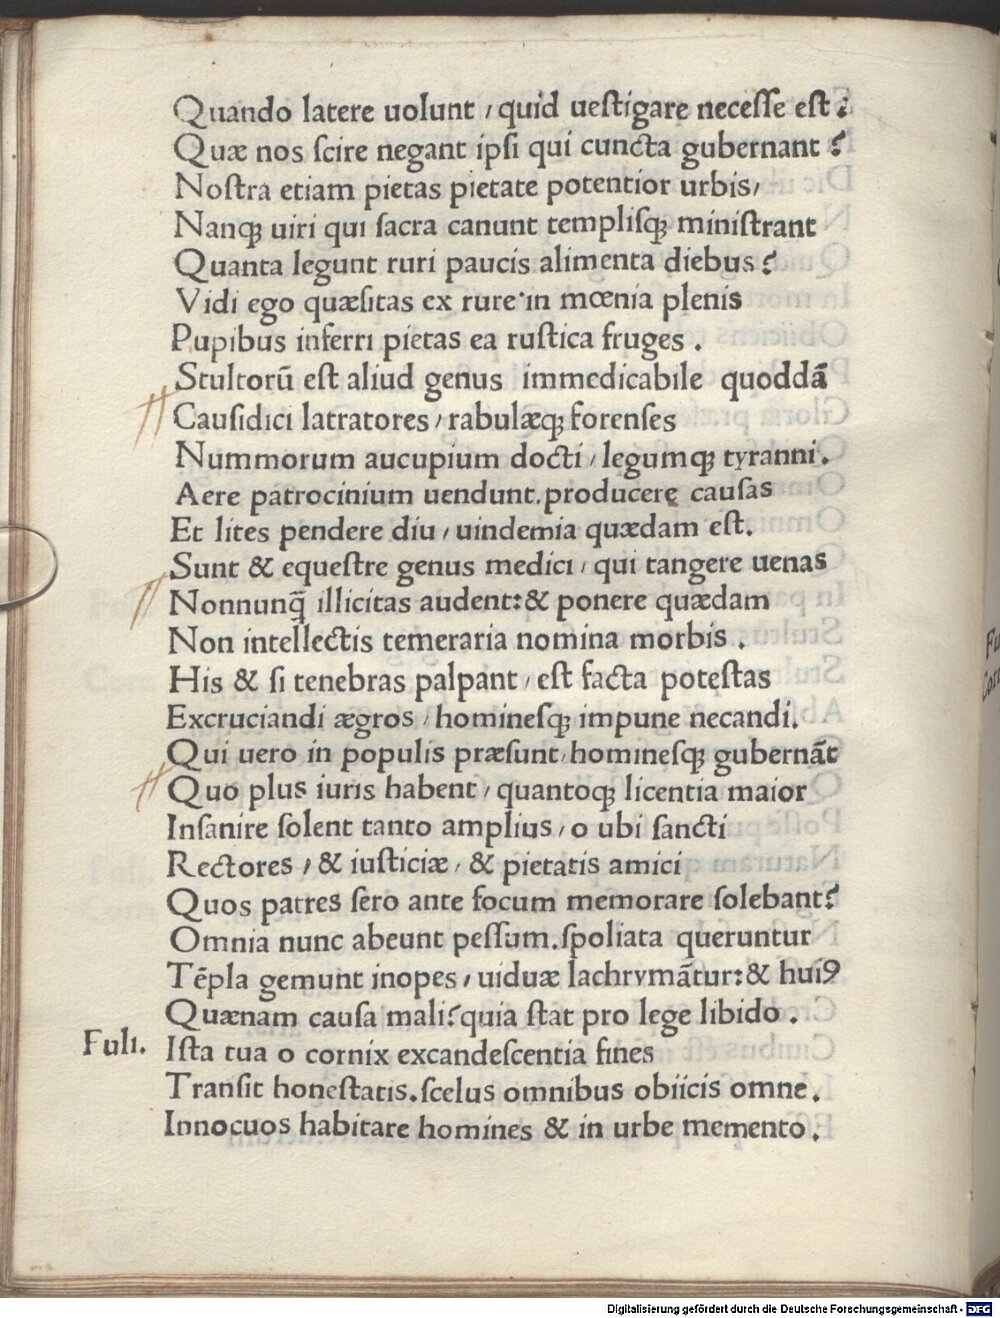 Quando latere uolunt / quid ueſtigare neceſſe eſt?
Quæ nos ſcire negant ipſi qui cuncta gubernant ?
Noſtra etiam pietas pietate potentior urbis /
Nanqꝫ uiri qui ſacra canunt templiſqꝫ miniſtrant
Quanta legunt ruri paucis alimenta diebus ?
Vidi ego quæſitas ex rure in mœnia plenis
Pupibus inferri pietas ea ruſtica fruges .
Stultorū eſt aliud genus immedicabile quoddā
Cauſidici latratores / rabulæqꝫ forenſes
Nummorum aucupium docti / legumqꝫ tyranni .
Aere patrocinium uendunt. producere cauſas
Et lites pendere diu / uindemia quædam eſt.
Sunt & equeſtre genus medici / qui tangere uenas
Nonnunq̄ illicitas audent: & ponere quædam
Non intellectis temeraria nomina morbis .
His & ſi tenebras palpant / eſt facta poteſtas
Excruciandi ægros / homineſqꝫ impune necandi.
Qui uero in populis præſunt / homineſqꝫ gubernāt
Quo plus iuris habent / quantoqꝫ licentia maior
Inſanire ſolent tanto amplius / o ubi ſancti
Rectores / & iuſticiæ / & pietatis amici
Quos patres ſero ante focum memorare ſolebant?
Omnia nunc abeunt peſſum. ſpoliata queruntur
Tēpla gemunt inopes / uiduæ lachrymātur: & huiꝰ
Quænam cauſa mali? quia ſtat pro lege libido .
Fuli. Iſta tua o cornix excandeſcentia fines
Tranſit honeſtatis. ſcelus omnibus obiicis omne.
Innocuos habitare homines & in urbe memento.
Digitalisierung gefördert durch die Deutsche Forschungsgemeinschaft - DFG